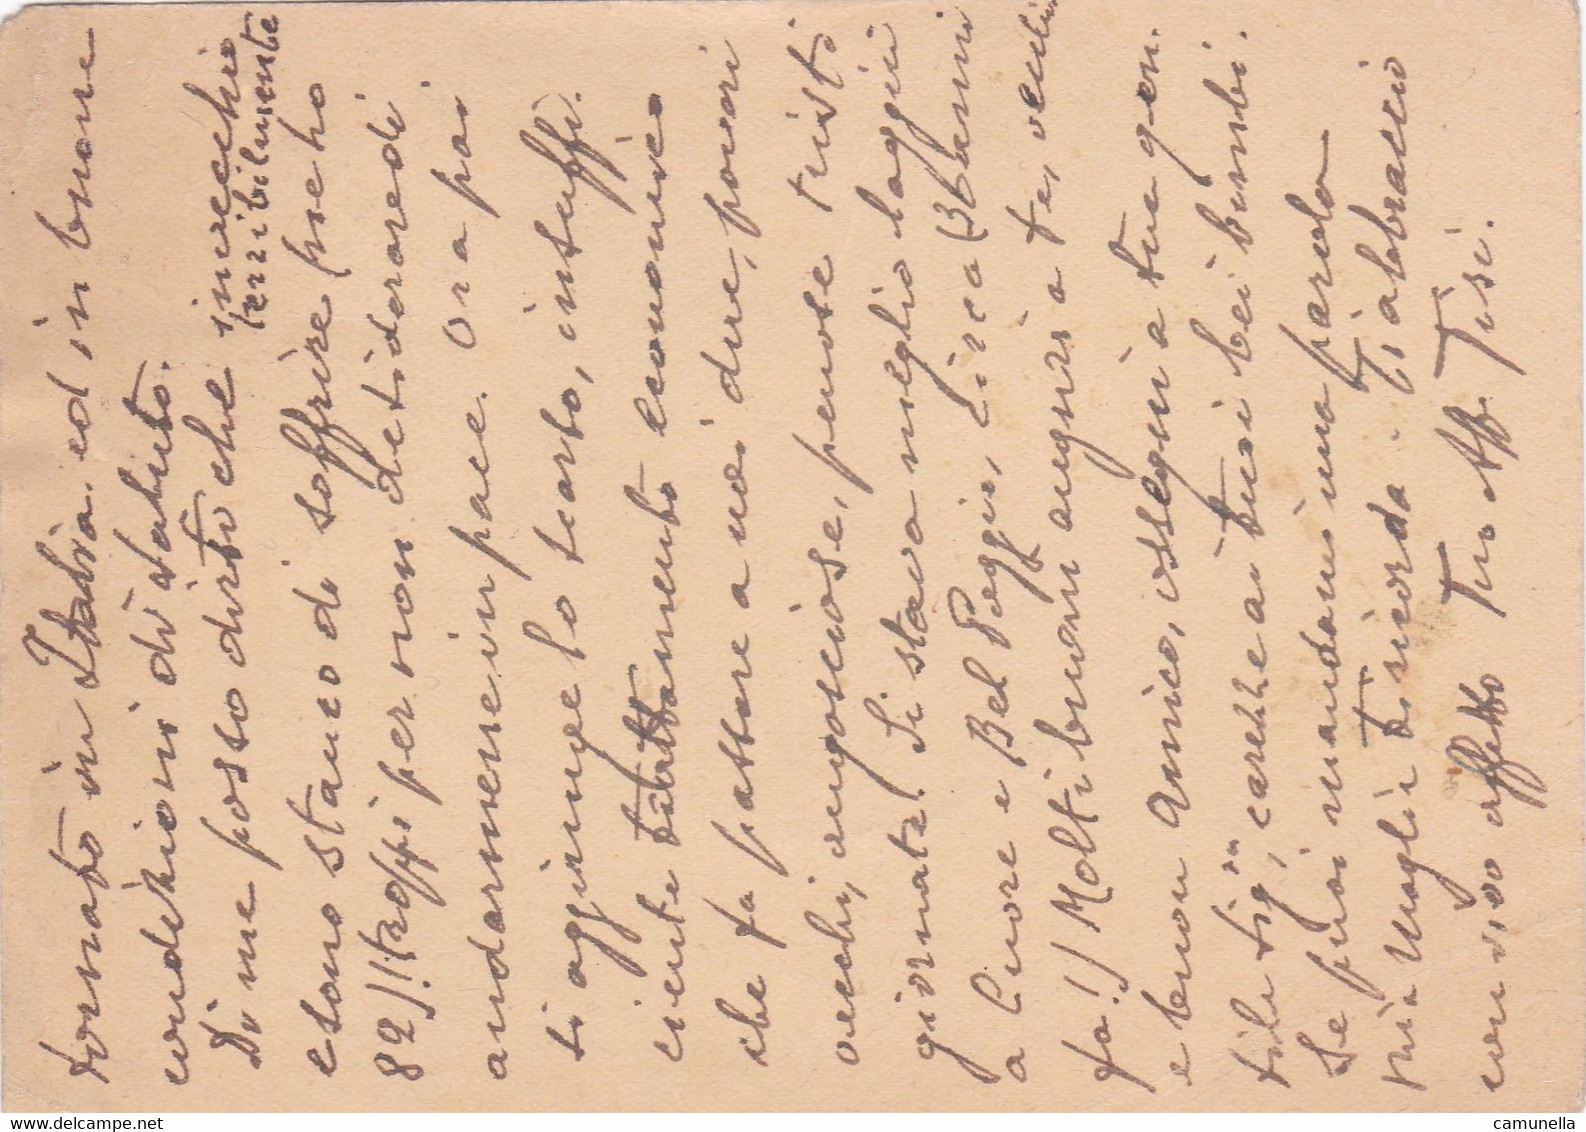 tornato in Italia ed in buone
condizioni di salute.
Di me posso dirti che invecchio
terribilmente
e sono stanco di soffrire (ne ho
82)! troppi per non desiderare di
andarmene in pace. Ora poi
si aggiunge lo scarto, insuffi-
ciente trattamento economico
che fa passare a noi due, poveri
vecchi, angosciose, penose tristi
giornate. Si stava meglio laggiù
a Cuore e Bel Poggio, circa 38 anni
fa!! Molti buoni auguri a te, vecchio
e buon amico, ossequi a tua gen-
tile sig.ra, carezze ai tuoi bei bimbi.
Se puoi mandami una parola
Mia moglie ti ricorda. Ti abbraccio
con vivo affetto Tuo Aff. Tisi.
camunella